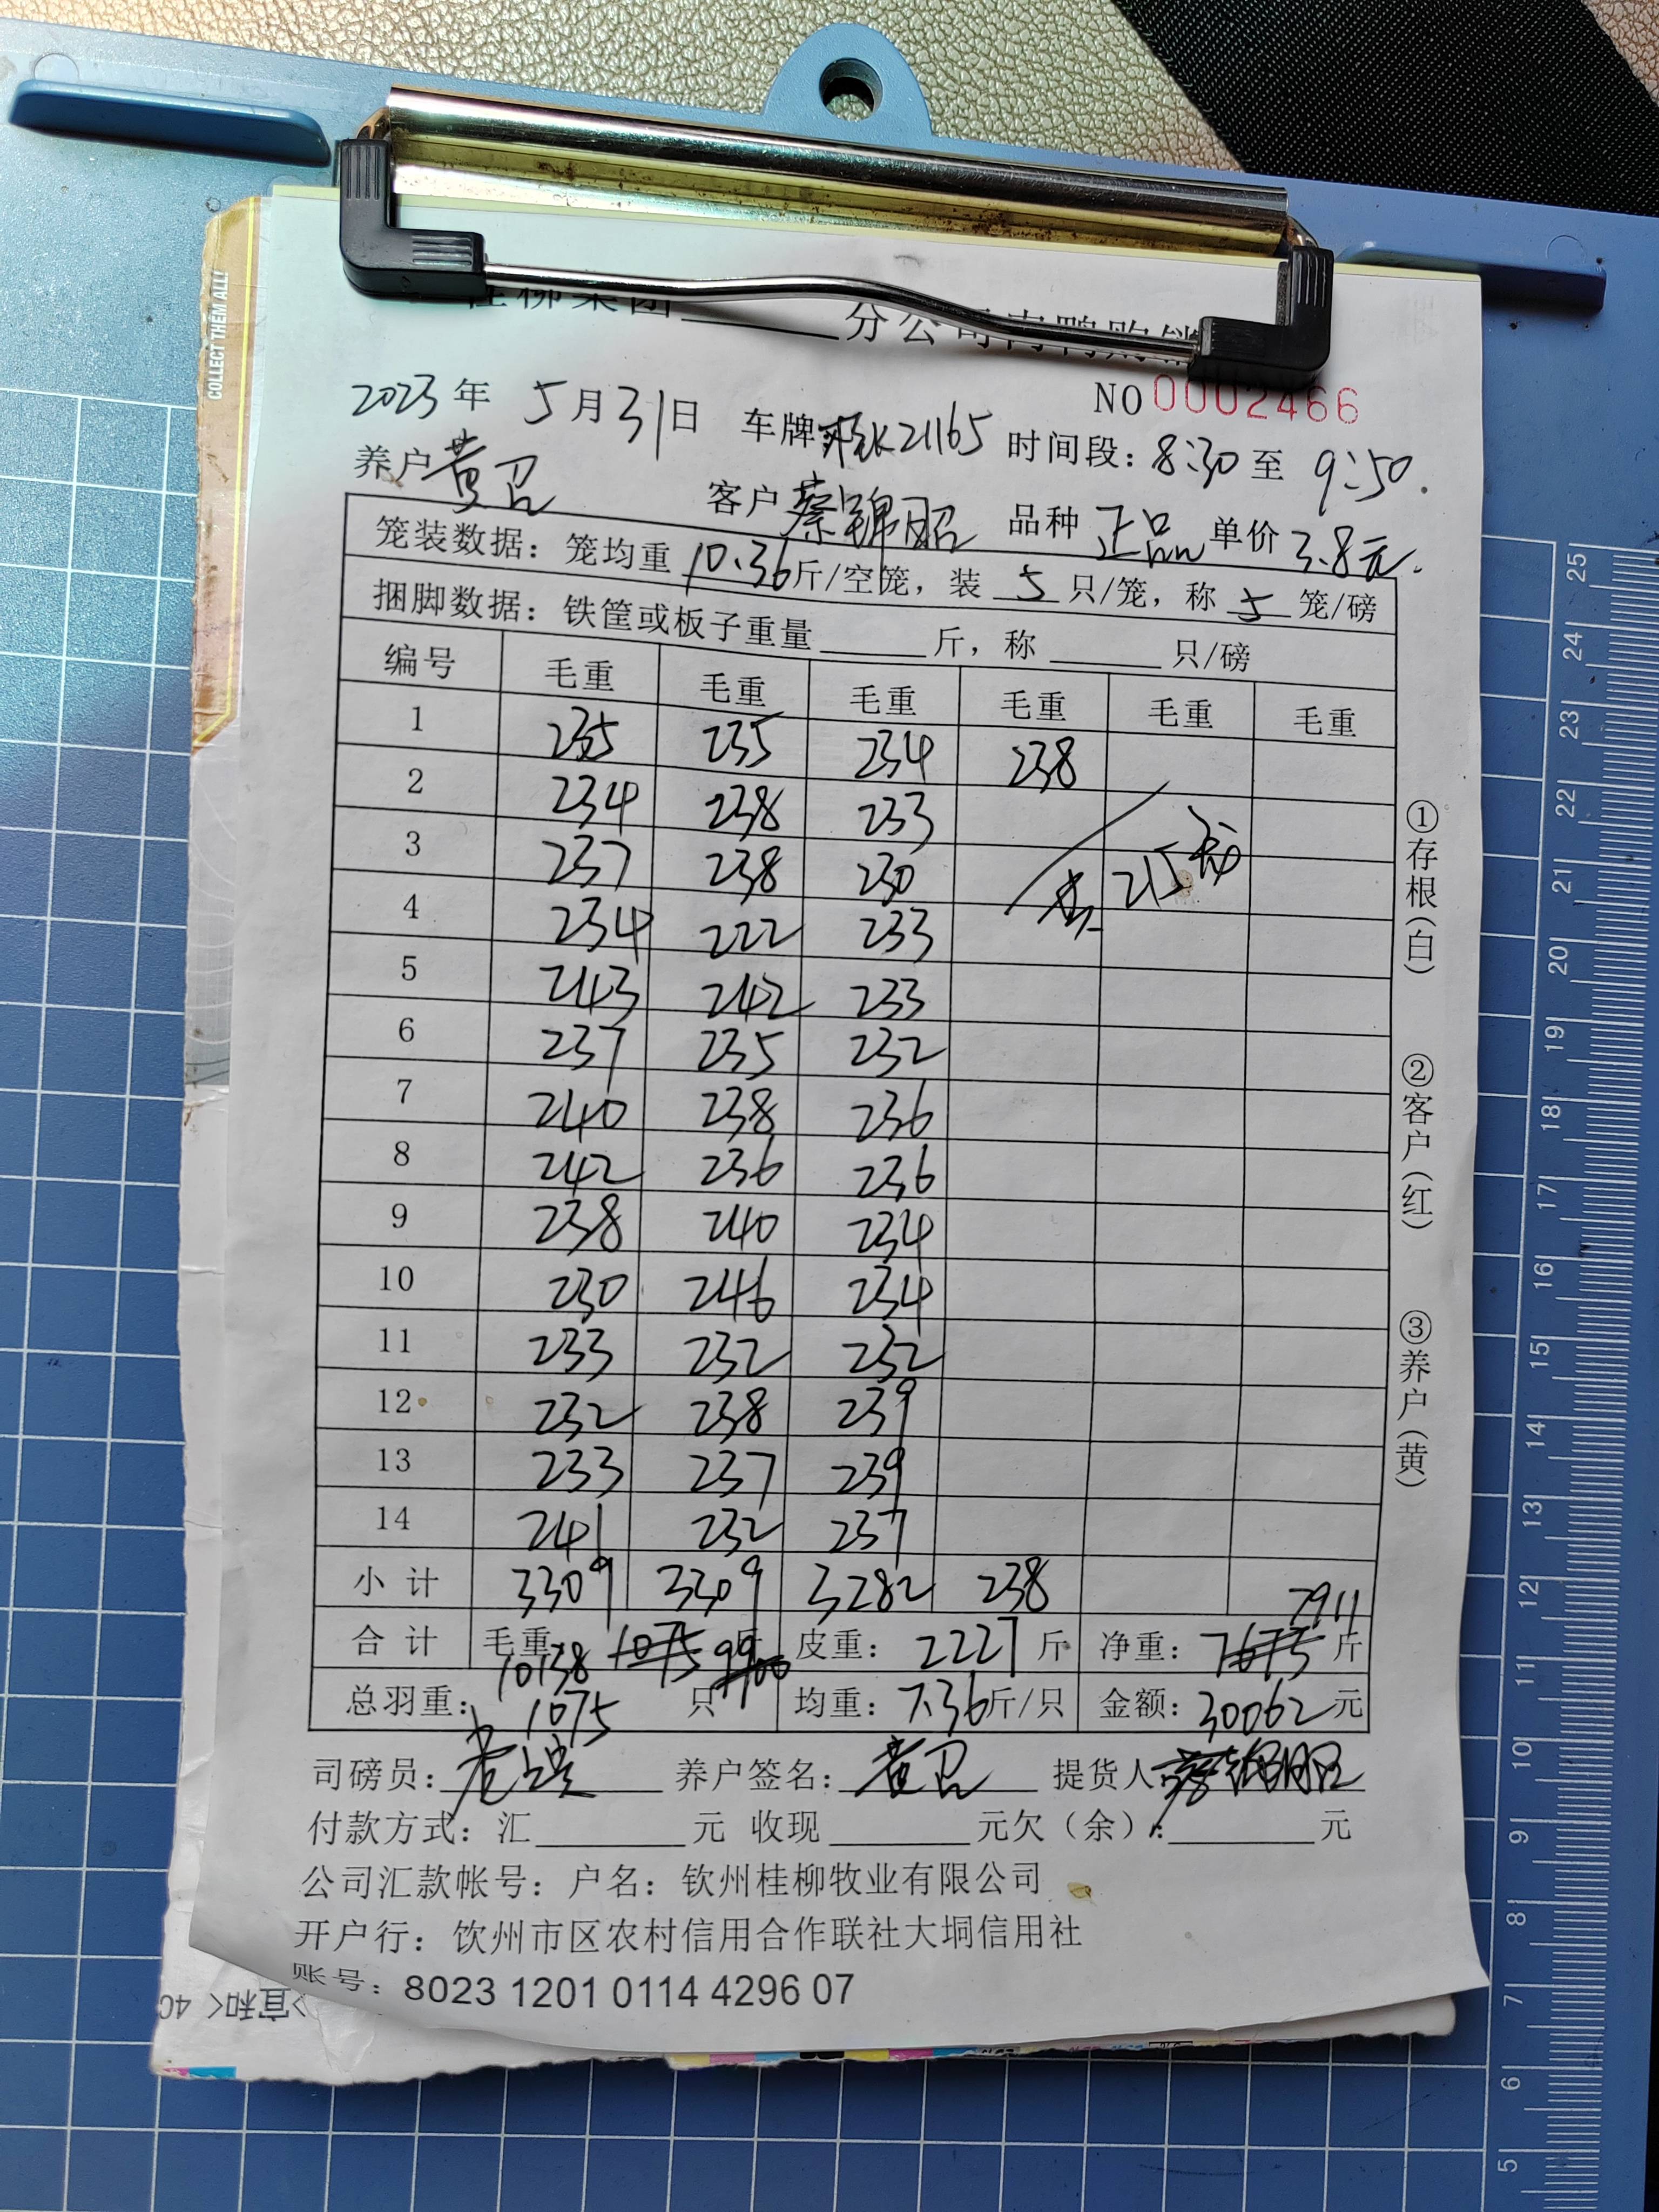 COLLECT THEM ALL!
桂柳集团______分公司肉鸭购销
NO 0002466
2023年 5月31日 车牌 K21165 时间段:8:30至 9:50.
养户 黄召 客户 蔡锦昭 品种 正品 单价 3.8元.
笼装数据:笼均重 10.36斤/空笼,装 5 只/笼,称 5 笼/磅
捆脚数据:铁筐或板子重量______斤,称______只/磅
编号 毛重 毛重 毛重 毛重 毛重 毛重
1 235 235 234 238
2 234 238 233
3 237 238 230 共215笼
4 234 222 233
5 243 242 233
6 237 235 232
7 240 238 236
8 242 236 236
9 238 240 234
10 230 246 234
11 233 232 232
12 232 238 239
13 233 237 239
14 241 232 237
小计 3309 3309 3282 238
合计 毛重 10138 1075 9900 斤 皮重:2227斤 净重:7675 7911 斤
总羽重:1075 只 均重:7.36斤/只 金额:30062元
司磅员: 养户签名:黄召 提货人:蔡锦昭
付款方式:汇______元 收现______元欠(余):______元
公司汇款帐号:户名:钦州桂柳牧业有限公司
开户行:饮州市区农村信用合作联社大垌信用社
账号:8023 1201 0114 4296 07
①存根(白) ②客户(红) ③养户(黄)
25
24
23
22
21
20
19
18
17
16
15
14
13
12
11
10
9
8
7
6
5